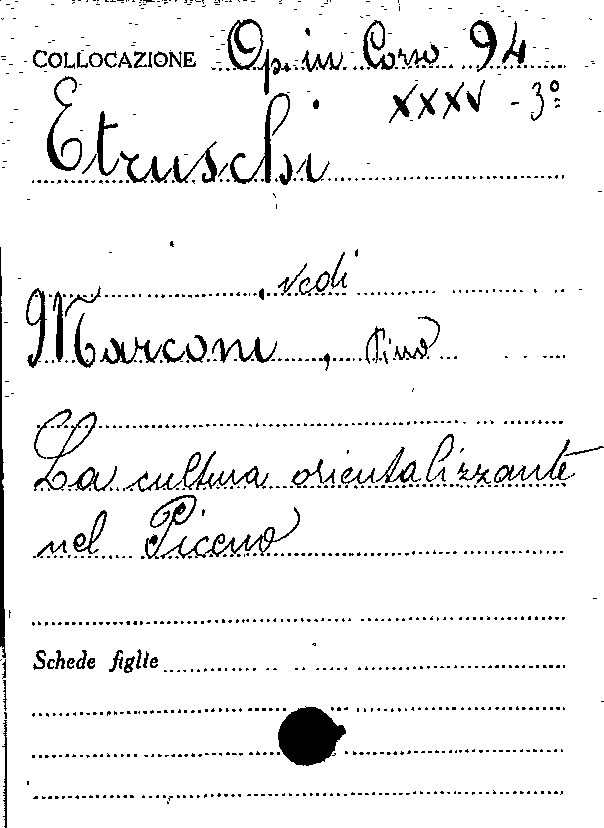 COLLOCAZIONE Op. in Corso 94
XXXV - 3°
Etruschi
, vedi
Marconi, Pino
La cultura orientalizzante
nel Piceno
Schede figlie